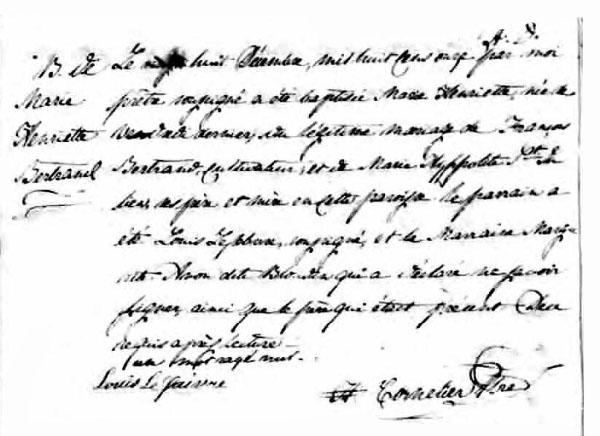 B. de
Marie
Henriette
Bertrand
Le vingt huit Décembre, mil huit cens onze par moi
prêtre soussigné a été baptisée Marie Henriette, née le
dernier, du légitime mariage de François
Bertrand, cultivateur, et de Marie Hyppolite St.
ses père et mère en cette paroisse le parrain a
été Louis Lefebvre, soussigné, et la Marraine Margue
rite qui a déclaré ne savoir
signer, ainsi que le père qui était présent de ce
requis après lecture
un mot rayé nul.
Louis Le
A Cornelier Ptre